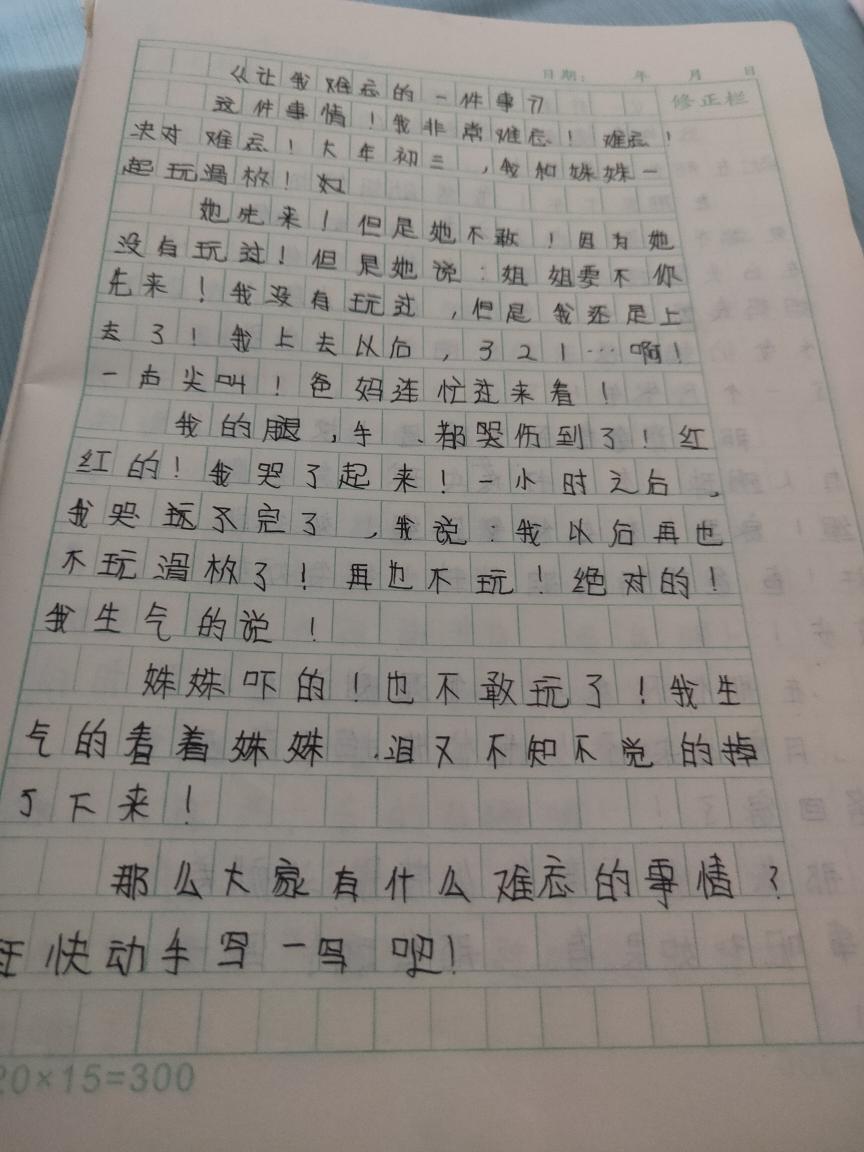 日期： 年 月 日
修正栏
《让我难忘的一件事》
这件事情！我非常难忘！难忘！
决对难忘！大年初三，我和妹妹一
起玩滑板！如
她先来！但是她不敢！因为她
没有玩过！但是她说：姐姐要不你
先来！我没有玩过，但是我还是上
去了！我上去以后，321…啊！
一声尖叫！爸妈连忙过来看！
我的腿，手、都哭伤到了！红
红的！我哭了起来！一小时之后，
我哭玩不完了，我说：我以后再也
不玩滑板了！再也不玩！绝对的！
我生气的说！
妹妹吓的！也不敢玩了！我生
气的看着妹妹．泪又不知不觉的掉
了下来！
那么大家有什么难忘的事情？
快动手写一写吧！
20×15=300